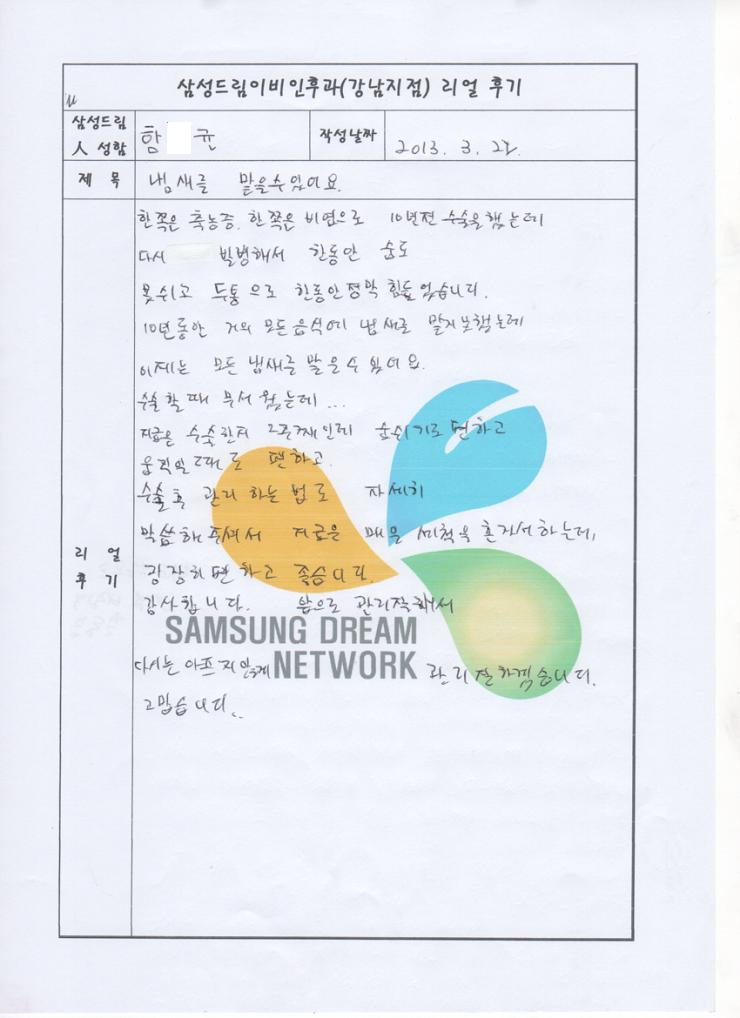 삼성드림이비인후과(강남지점) 리얼 후기
삼성드림
人 성함
함 균
작성날짜
2013. 3. 22.
제 목
냄새를 맡을수있어요.
한쪽은 축농증. 한쪽은 비염으로 10년전 수술을했는데
다시 발병해서 한동안 숨도
못쉬고 두통으로 한동안정말 힘들었습니다.
10년동안 거의 모든음식에 냄새를 맡지못했는데
이제는 모든 냄새를 맡을수 있어요.
수술할때 무서웠는데...
지금은 수술한지 2주째인데 숨쉬기도 편하고
움직일때도 편하고.
수술후 관리하는법도 자세히
말씀해주셔서 지금은 매일 세척을 혼자서하는데,
굉장히편하고 좋습니다.
감사합니다. 앞으로 관리잘해서
다시는 아프지않게 관리잘하겠습니다.
고맙습니다..
리 얼
후 기
SAMSUNG DREAM
NETWORK